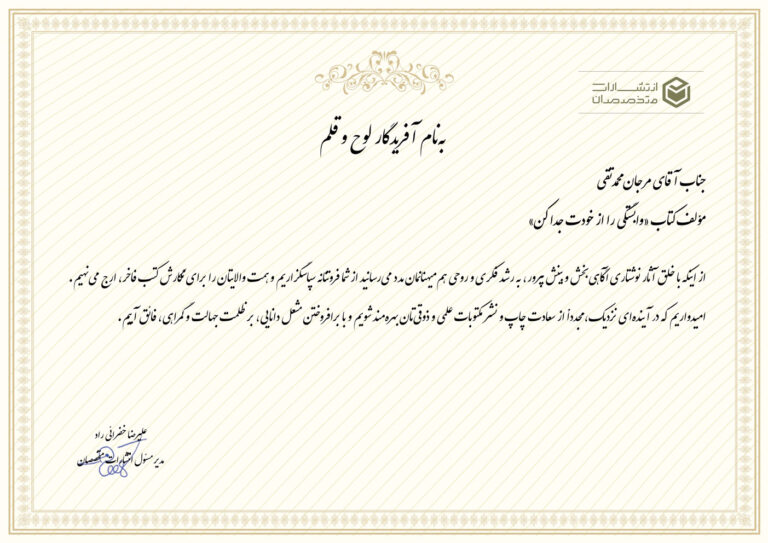 انتشارات
متخصصان
به‌نام آفریدگار لوح و قلم
جناب آقای مرجان محمدتقی
مؤلف کتاب «وابستگی را از خودت جدا کن»
از اینکه با خلق آثار نوشتاری آگاهی‌بخش و بینش پرور، به رشد فکری و روحی هم‌میهنانمان مدد می‌رسانید از شما فروتنانه سپاسگزاریم و همت والایتان را برای نگارش کتب فاخر، ارج می‌نهیم.
امیدواریم که در آینده‌ای نزدیک، مجدداً از سعادت چاپ و نشر مکتوبات علمی و ذوقی‌تان بهره‌مند شویم و با برافروختن مشعل دانایی، بر ظلمت جهالت و گمراهی، فائق آییم.
علیرضا خفرائی راد
مدیر مسئول انتشارات متخصصان